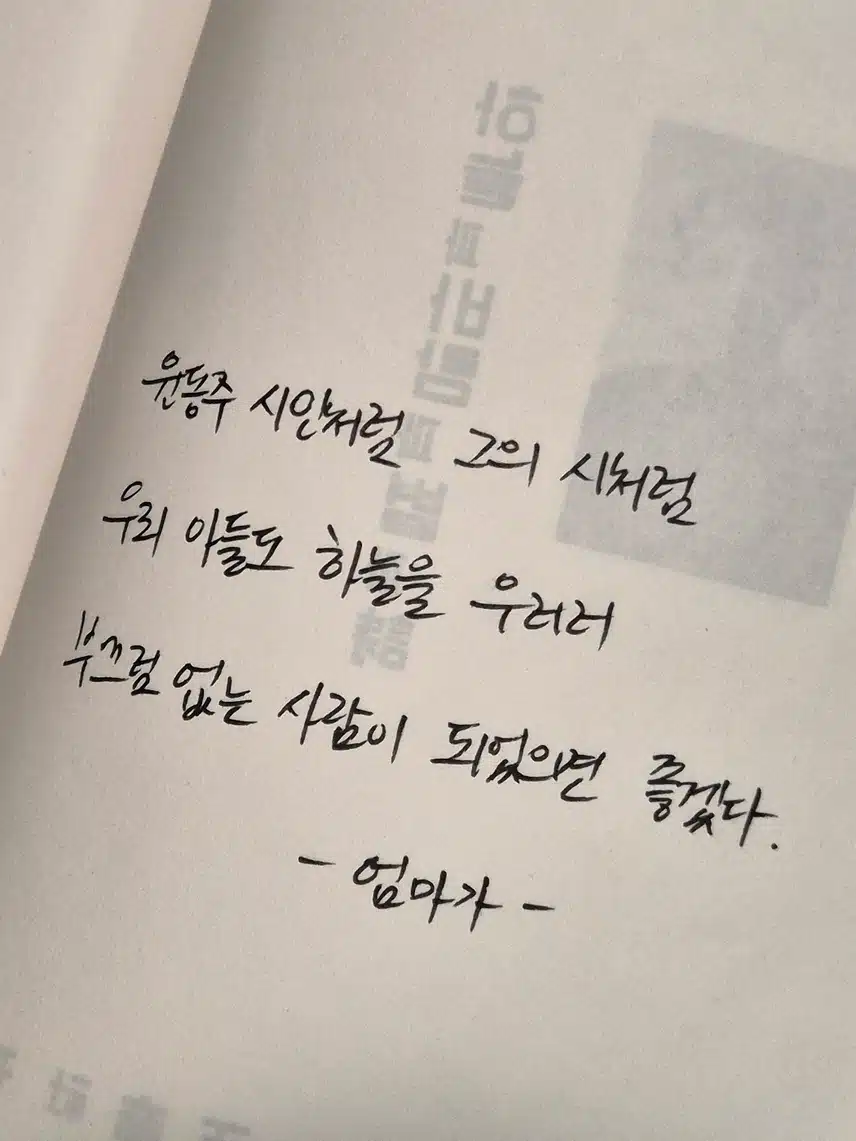 윤동주 시인처럼 그의 시처럼
우리 아들도 하늘을 우러러
부끄럼 없는 사람이 되었으면 좋겠다.
- 엄마가 -